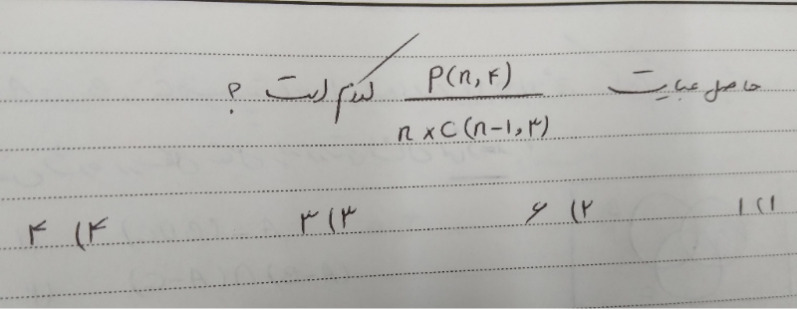 حاصل عبارت P(n,۴) / n×C(n-۱,۳) کدام است ؟
۱) ۱ ۲) ۶ ۳) ۳ ۴) ۴